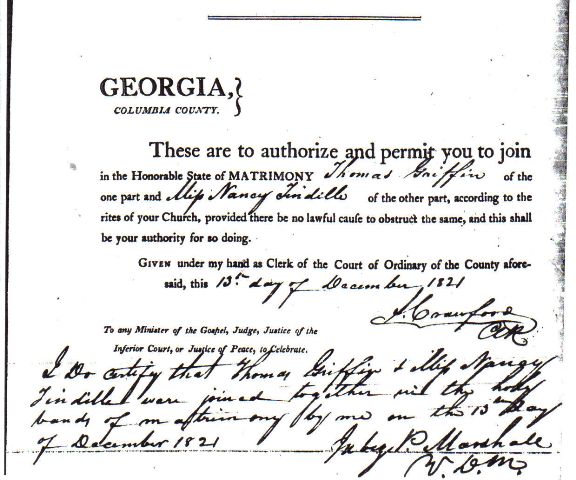 GEORGIA,}
COLUMBIA COUNTY.
These are to authorize and permit you to join
in the Honorable State of MATRIMONY Thomas Griffin of the
one part and Miſs Nancy Tindille of the other part, according to the
rites of your Church, provided there be no lawful cauſe to obstruct the same, and this shall
be your authority for so doing.
GIVEN under my hand as Clerk of the Court of Ordinary of the County afore-
said, this 13th day of December 1821
Crawford
To any Minister of the Gospel, Judge, Justice of the
Inferior Court, or Justice of Peace, to Celebrate.
I Do certify that Thomas Griffin & Miſs Nancy
Tindille were joined together in the holy
bands of matrimony by me on the 13th day
of December 1821
Jabez P. Marshall
V. D. M.